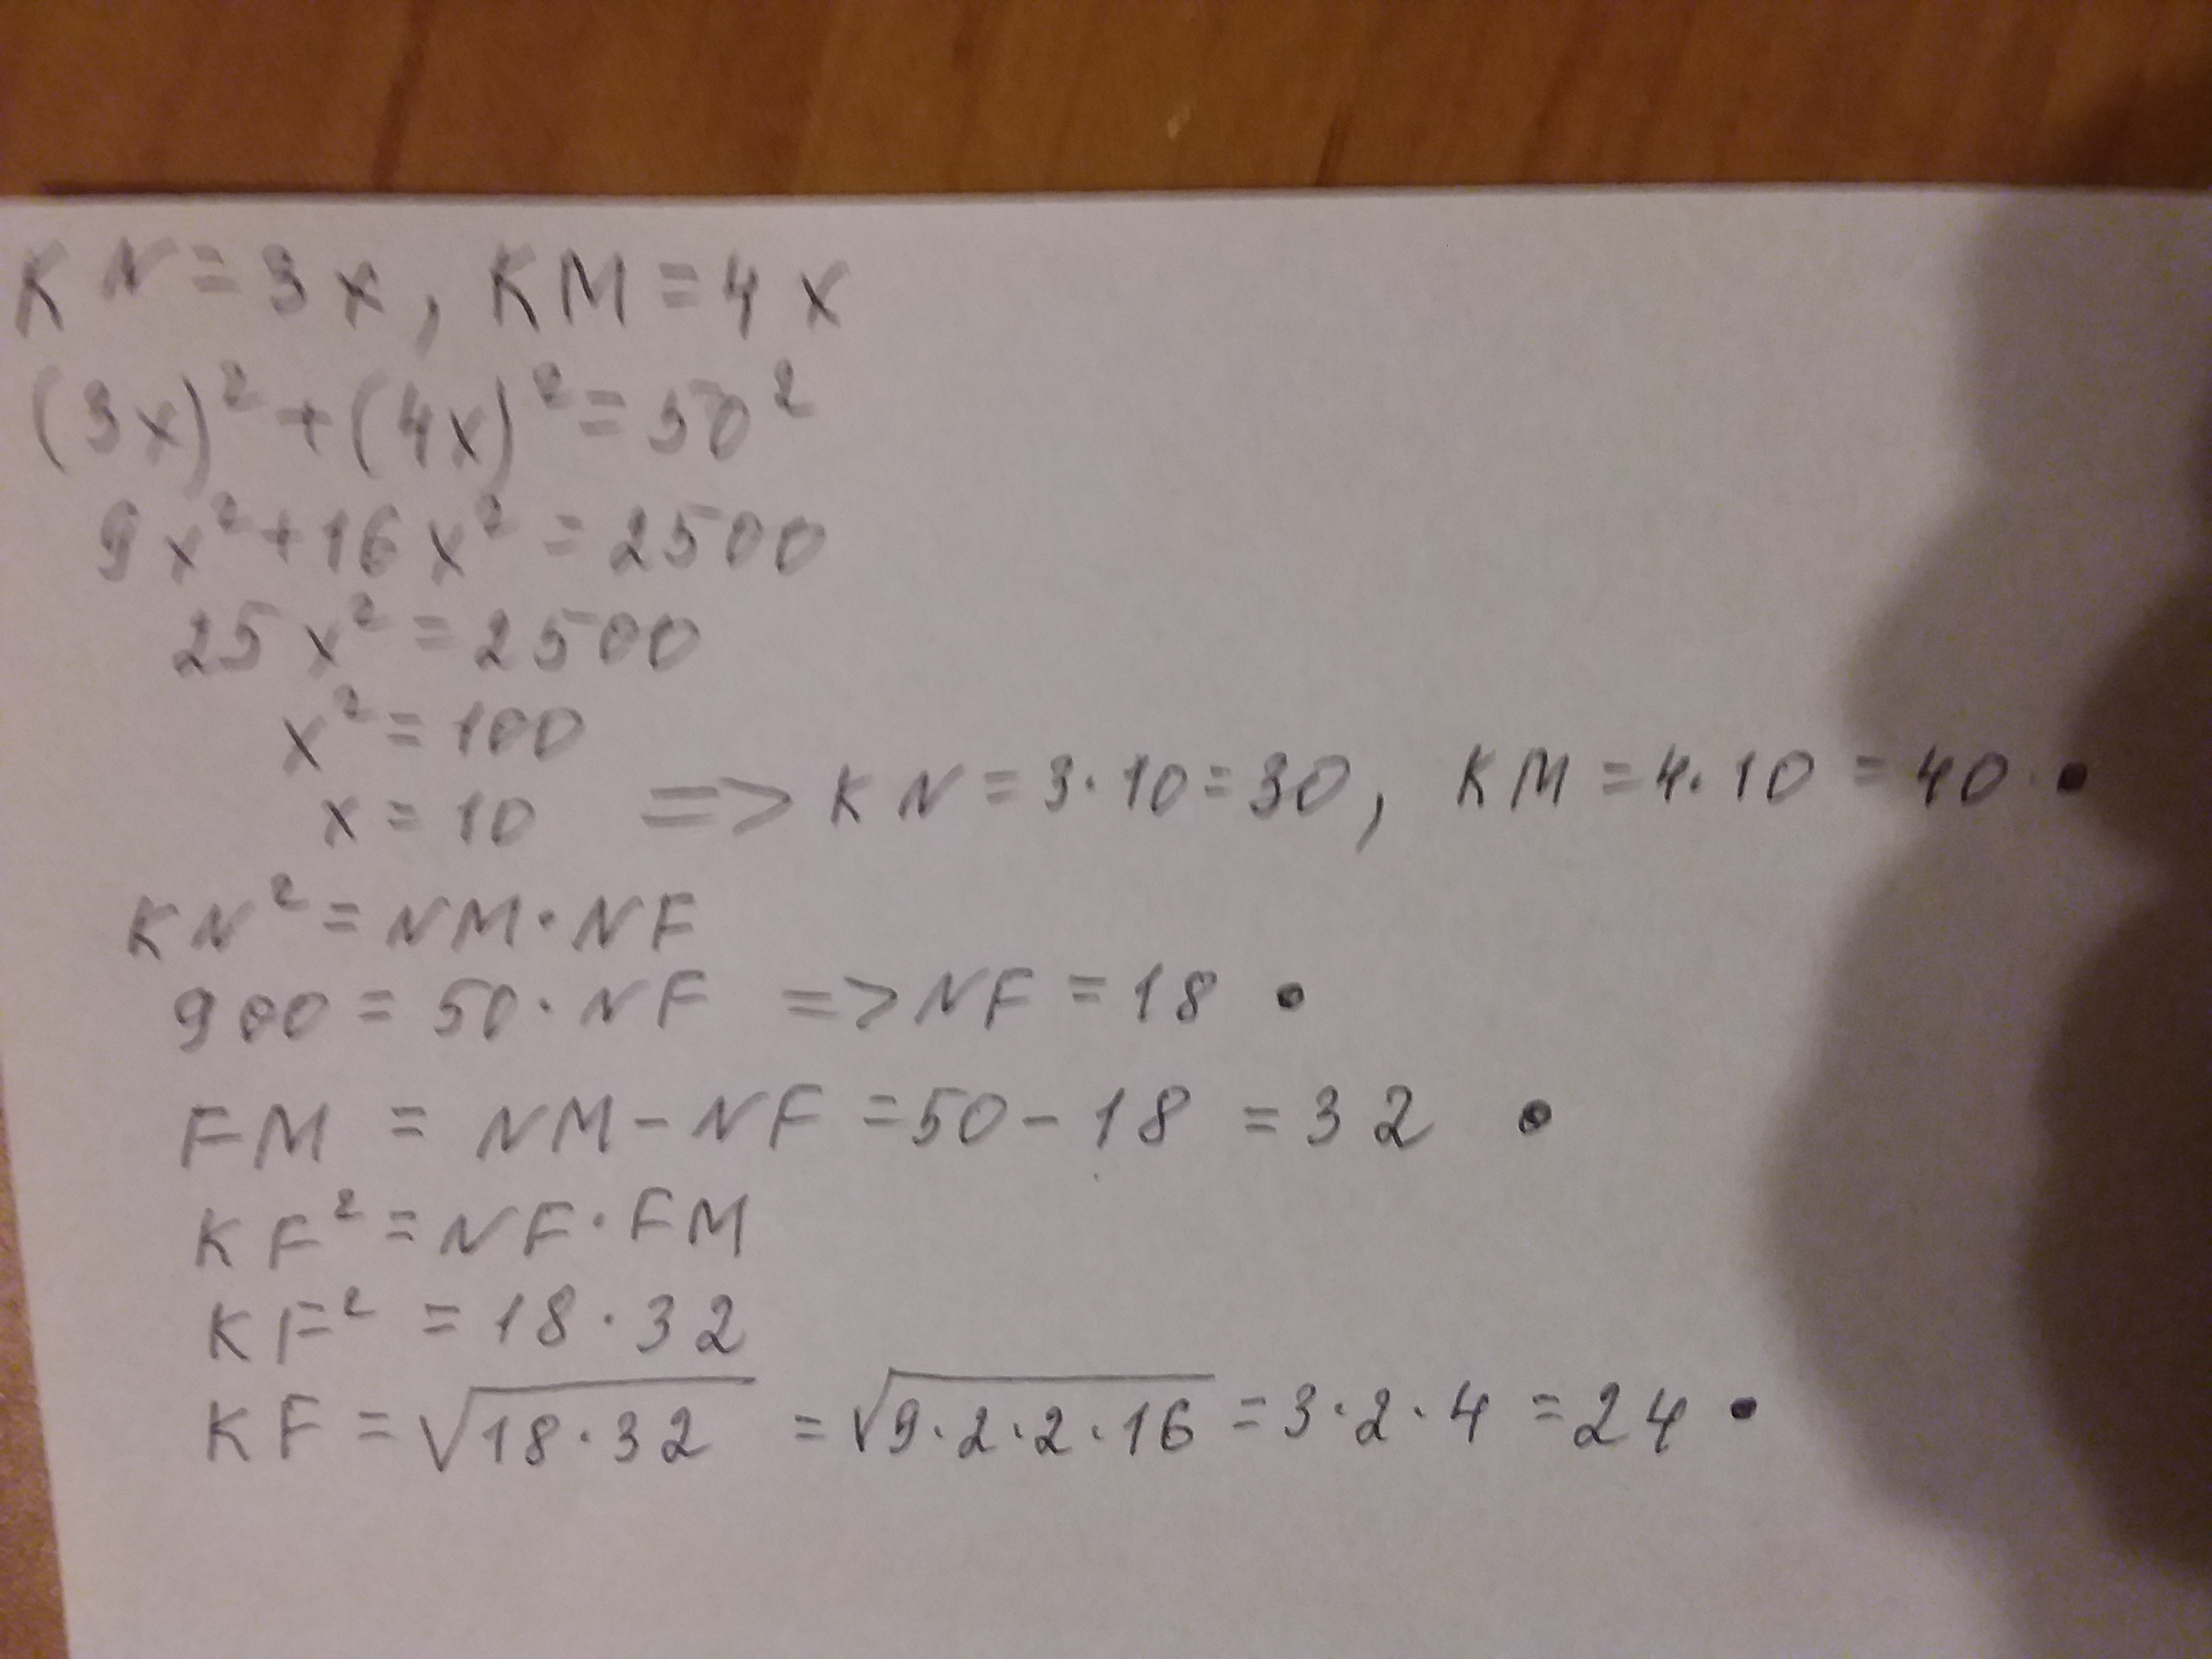 KN=3x, KM=4x
(3x)²+(4x)²=50²
9x²+16x²=2500
25x²=2500
x²=100
x=10 => KN=3·10=30, KM=4·10=40 •
KN²=NM·NF
900=50·NF =>NF=18 •
FM = NM-NF=50-18=32 •
KF²=NF·FM
KF²=18·32
KF=√18·32 =√9·2·2·16=3·2·4=24 •